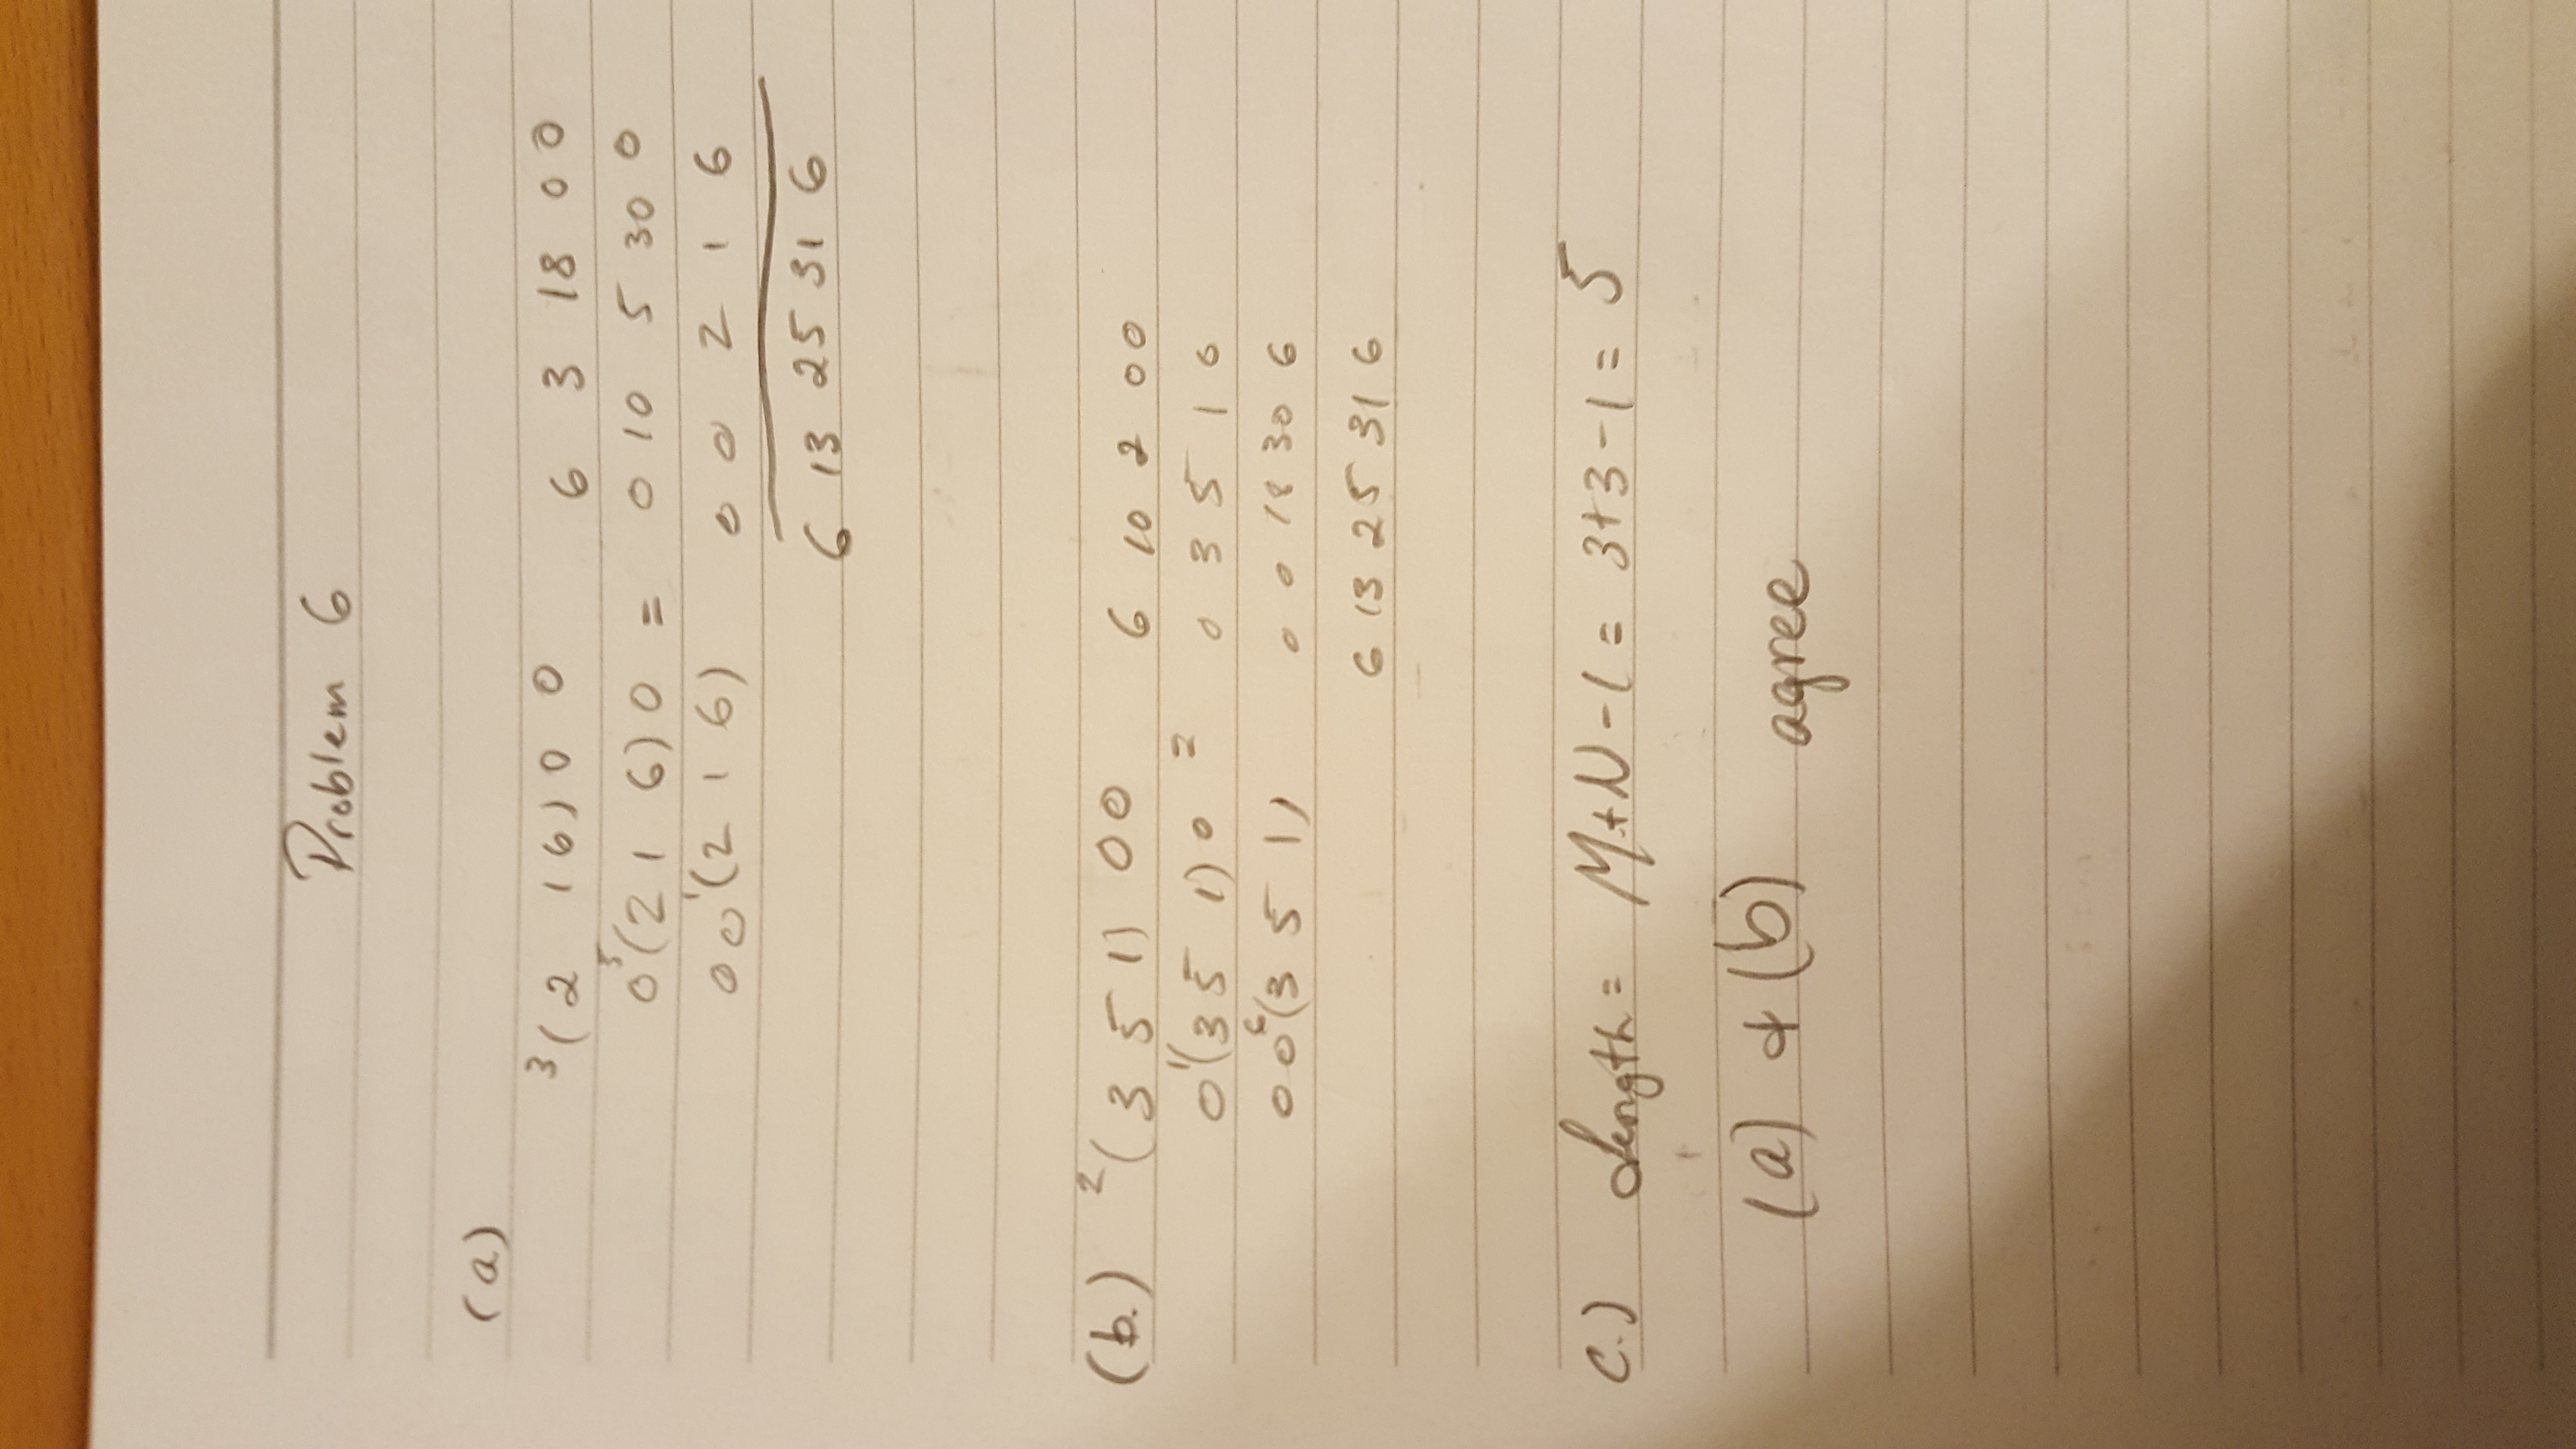 Problem 6
(a)
3(2 1 6) 0 0 6 3 18 0 0
0 5(2 1 6) 0 = 0 10 5 30 0
0 0 1(2 1 6) 0 0 2 1 6
6 13 25 31 6
(b.) 2(3 5 1) 0 0 6 10 2 0 0
0 1(3 5 1) 0 = 0 3 5 1 0
0 0 6(3 5 1) 0 0 18 30 6
6 13 25 31 6
c.) Length = M+N-1 = 3+3-1 = 5
(a) & (b) agree